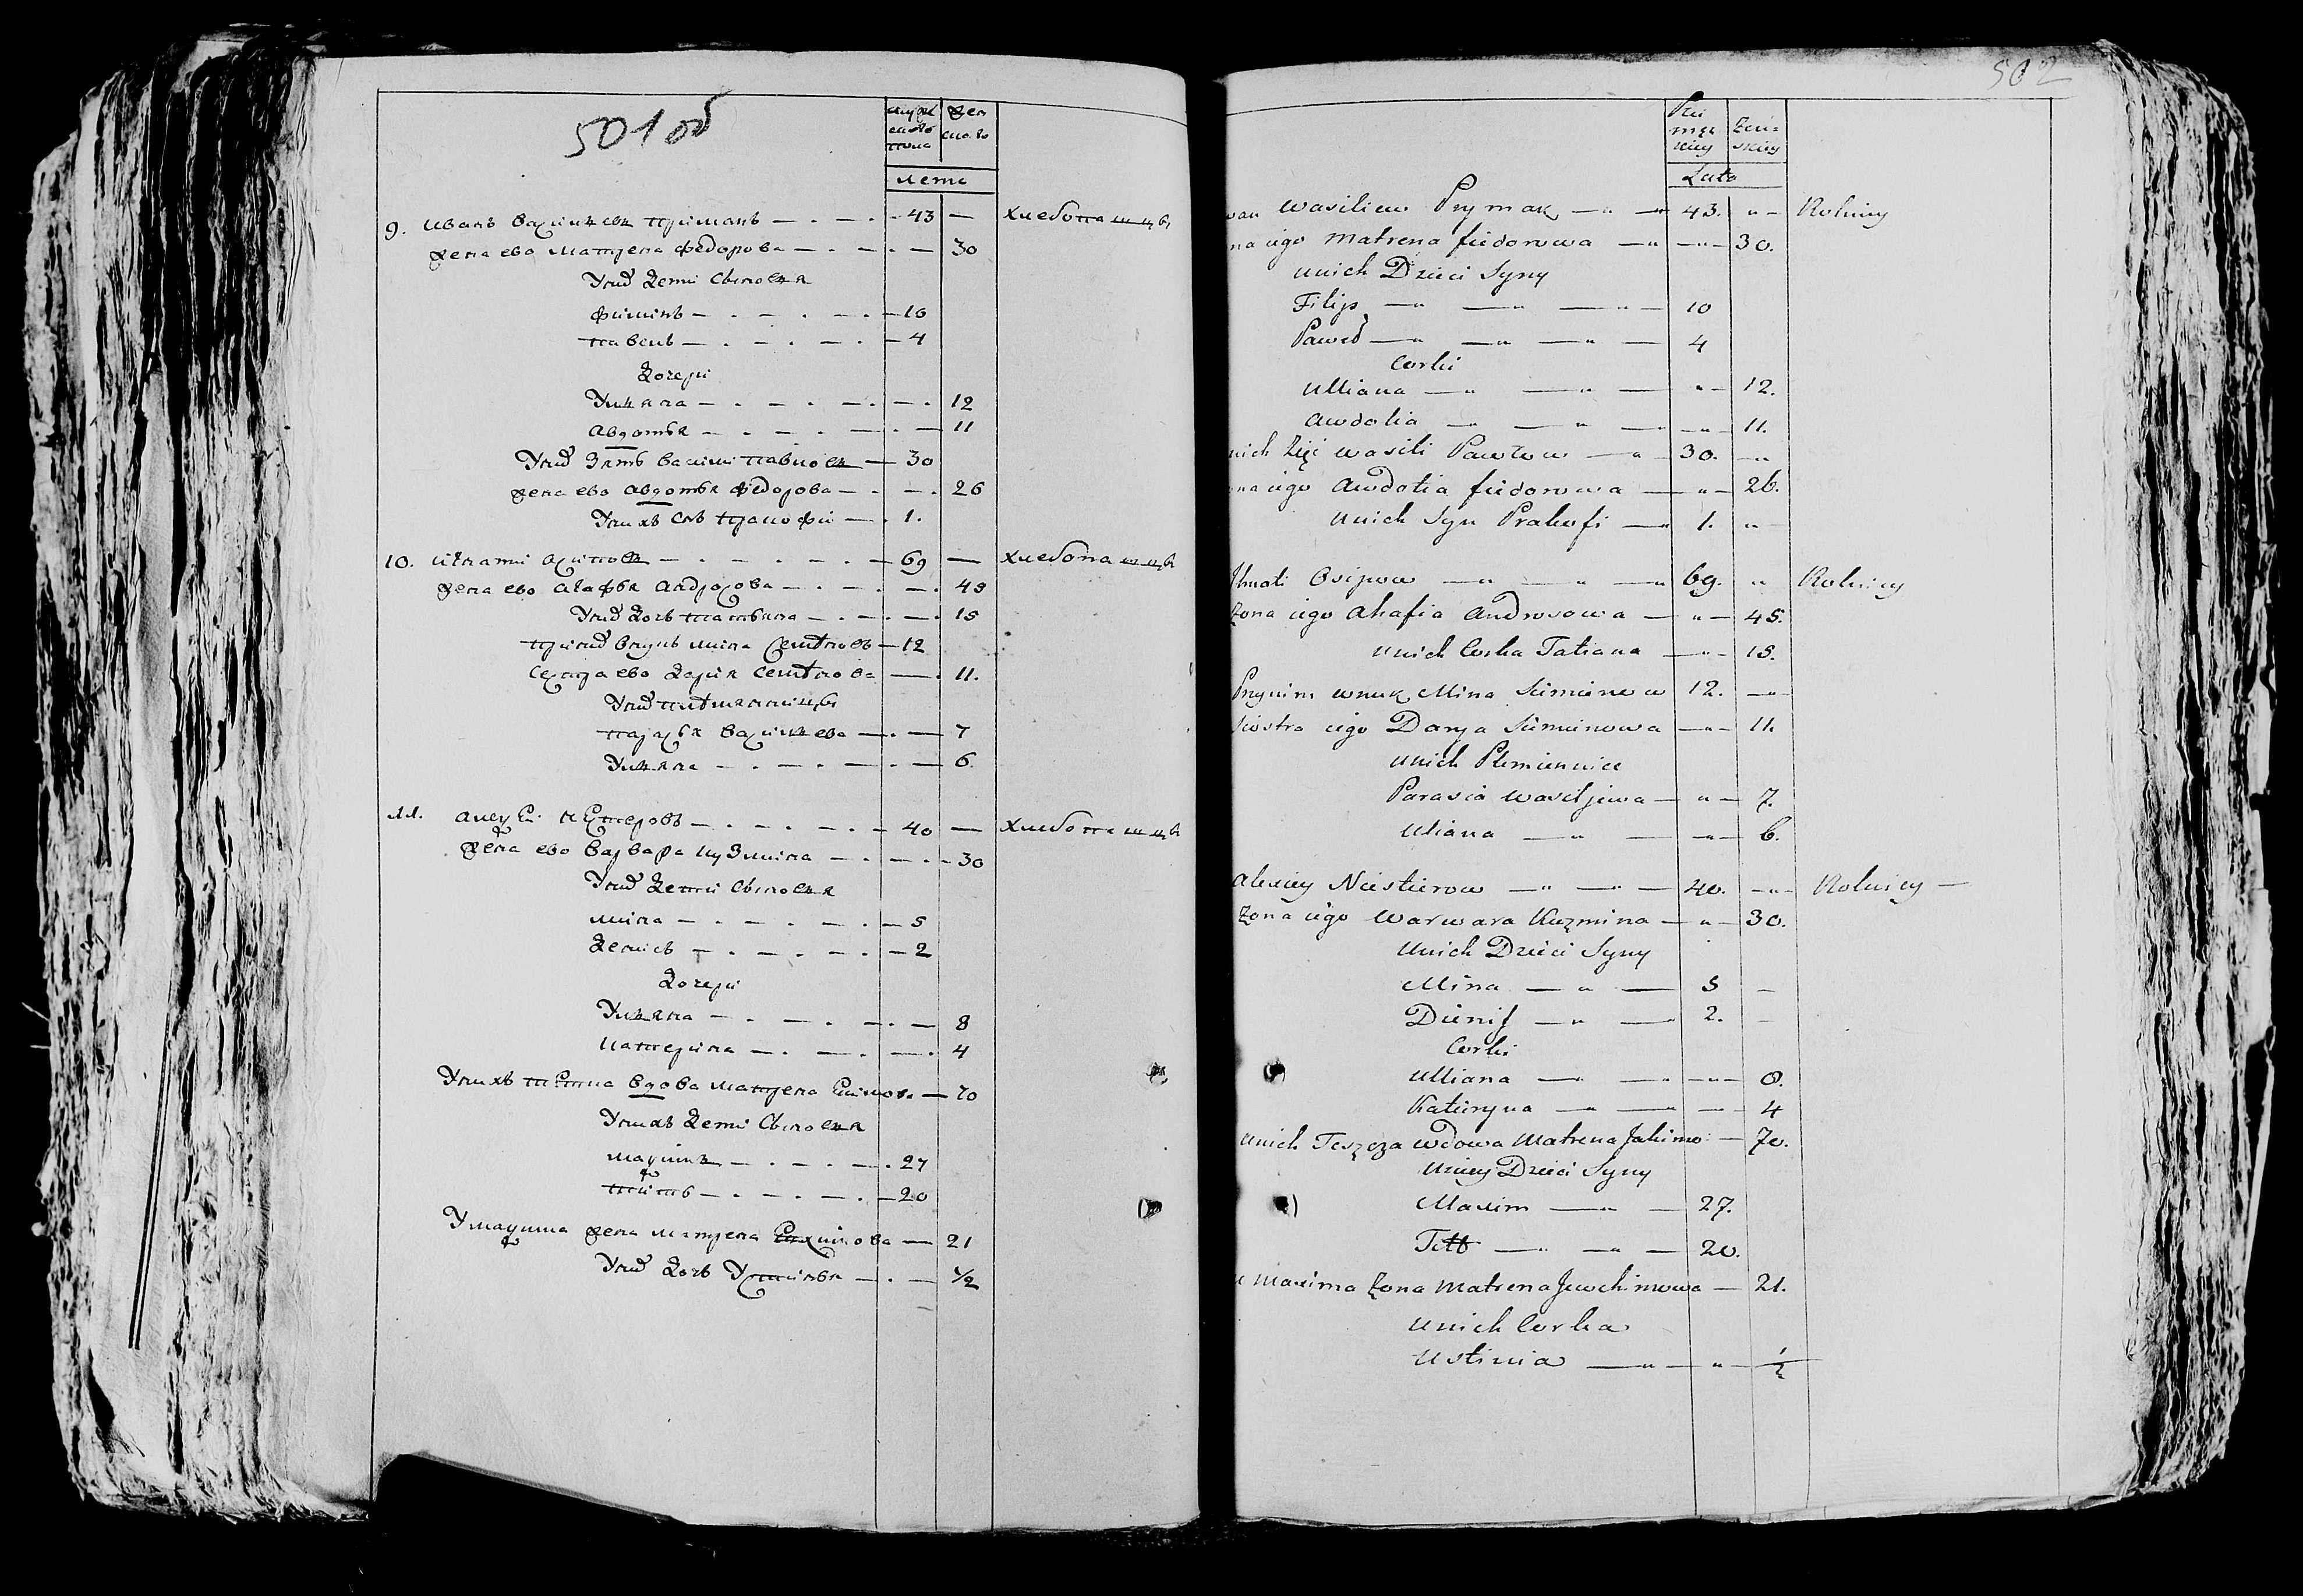 501 об
мужеска пола
женска
лета
9. иванъ василевъ примакъ 43 — хлебопашцы
жена ево матрена федорова 30
У них дети сыновя
филипъ 10
павелъ 4
дочери
Уляна 12
авдотя 11
У них зять василий павловъ 30
жена ево авдотя федорова 26
У них сынъ прокофи 1.
10. игнати осиповъ 69 — хлебопашцы
жена ево агафя андросова 45
У них дочь татьяна 15
внукъ мина семеновъ 12
сестра ево дария семенова 11.
У них племянницы
парасья василева 7
Уляна 6
11. алексей нестеровъ 40 — хлебопашцы
жена ево варвара кузмина 30
У них дети сыновя
мина 5
денисъ 2
дочери
Уляна 8
катерина 4
У нихъ теща вдова матрена 70
У нихъ дети сыновя
максим 27
титъ 20
У максима жена матрена 21
У них дочь Устиня ½
502
Płci męzkiey
Żeńskiey
Lata
wasiliew Prymak 43. Rolnicy
iego matrena fiedorowa 30.
unich Dzieci Syny
Filip 10
Paweł 4
Corki
Ulliana 12.
Awdotia 11.
Zięć wasili Pawłow 30.
iego Awdotia fiedorowa 26.
unich Syn Prakofi 1.
Ihnati Osipow 69. Rolnicy
Żona iego Ahafia Androsowa 45.
unich Corka Tatiana 15.
Przyním wnuk Mina Simionow 12.
Siostra iego Darya Simionowa 11.
unich Plemiennice
Parasia wasiljewa 7.
Uliana 6.
Alexiey Niestierow 40. Rolnicy
Żona iego Warwara Kuzmina 30.
Unich Dzieci Syny
Mina 5
Dienis 2.
Corki
Ulliana 8.
Katieryna 4
unich Teszcza wdowa Matrena Jakimo 70.
Uniey Dzieci Syny
Maxim 27.
Titt 20.
u Maxima Żona Matrena Jewchimowa 21.
Unich Corka
Ustinia ½